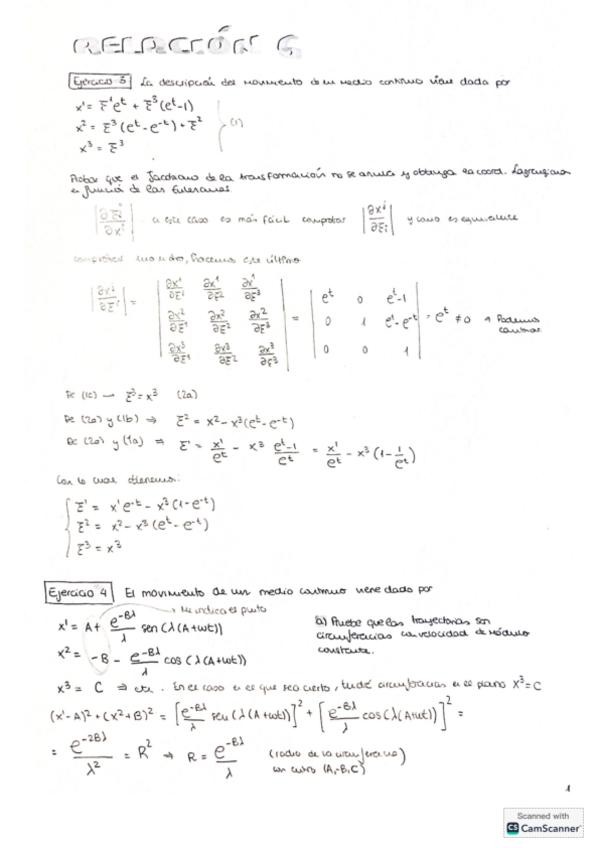 RELACIÓN 6
Ejercicio 3 La descripción del movimiento de un medio continuo viene dada por
x¹ = Ξ¹eᵗ + Ξ³(eᵗ-1)
x² = Ξ³(eᵗ - e⁻ᵗ) + Ξ² (1)
x³ = Ξ³
Probar que el Jacobiano de la transformación no se anula y obtenga la coord. Lagrangiana
en función de las Eulerianas
|∂Ξⁱ/∂xⁱ| en este caso es más fácil comprobar |∂xⁱ/∂Ξⁱ| y como es equivalente
comprobar uno u otro, hacemos este último
|∂xⁱ/∂Ξⁱ| = | ∂x¹/∂Ξ¹ ∂x¹/∂Ξ² ∂x¹/∂Ξ³ | = | eᵗ 0 eᵗ-1 |
| ∂x²/∂Ξ¹ ∂x²/∂Ξ² ∂x²/∂Ξ³ | | 0 1 eᵗ-e⁻ᵗ | = eᵗ ≠ 0 → Podemos
| ∂x³/∂Ξ¹ ∂x³/∂Ξ² ∂x³/∂Ξ³ | | 0 0 1 |
De (1c) → Ξ³ = x³ (2a)
De (2a) y (1b) ⇒ Ξ² = x² - x³(eᵗ - e⁻ᵗ)
De (2a) y (1a) ⇒ Ξ¹ = x¹/eᵗ - x³ (eᵗ-1)/eᵗ = x¹/eᵗ - x³(1 - 1/eᵗ)
Con lo cual obtenemos:
Ξ¹ = x¹e⁻ᵗ - x³(1-e⁻ᵗ)
Ξ² = x² - x³(eᵗ - e⁻ᵗ)
Ξ³ = x³
Ejercicio 4 El movimiento de un medio continuo viene dado por
→ Me indica el punto
x¹ = A + e^(-Bλ)/λ sen(λ(A+ωt)) a) Pruebe que las trayectorias son
circunferencias con velocidad de módulo
x² = -B - e^(-Bλ)/λ cos(λ(A+ωt)) constante.
x³ = C ⇒ cte. En el caso en el que sea cierto, tendré circunferencias en el plano x³=C
(x¹-A)² + (x²+B)² = [e^(-Bλ)/λ sen(λ(A+ωt))]² + [e^(-Bλ)/λ cos(λ(A+ωt))]² =
= e^(-2Bλ)/λ² = R² ⇒ R = e^(-Bλ)/λ (radio de la circunferencia)
con centro (A,-B,C)
1
Scanned with
CS CamScanner